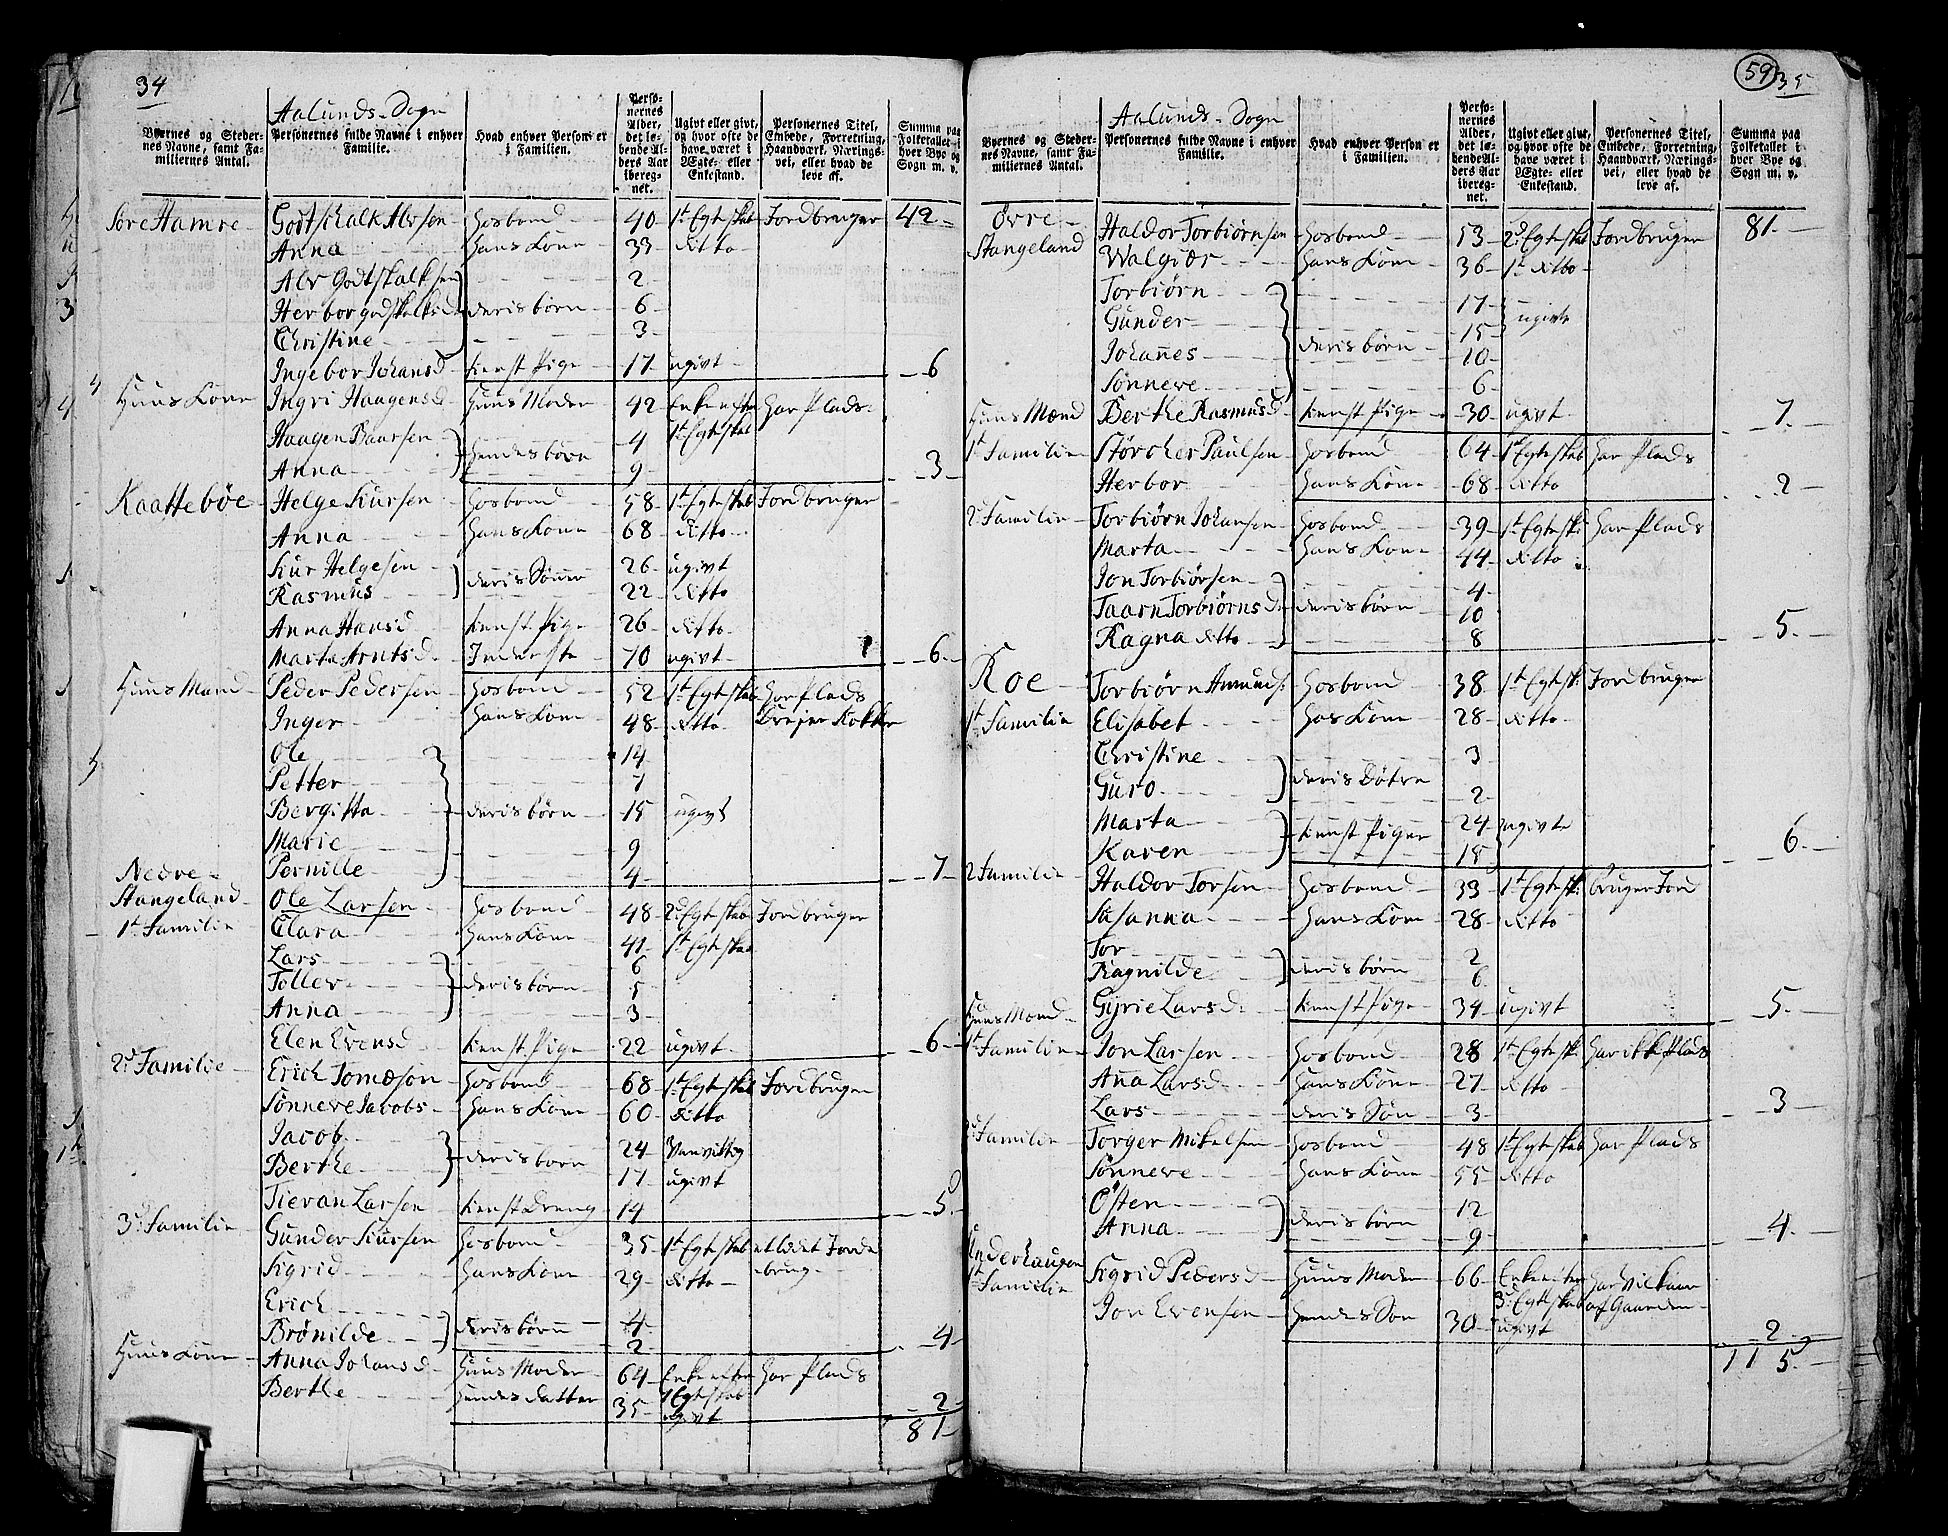 34
Aalunds Sogn
Byernes og Steder-nes Navne, samt Fa-miliernes Antal.
Personernes fulde Navne i enhver Familie.
Hvad enhver Person er i Familien.
Perso-nernes Alder, det lø-bende Al-ders Aar iberegnet.
Ugivt eller givt, og hvor ofte de have været i Ægte- eller Enkestand.
Personernes Titel, Embede, Forretning, Haandværk, Nærings-vei, eller hvad de leve af.
Summa paa Folketallet i hver Bye og Sogn m. v.
Søre Hamre Godtschalk Alvsen Hosbond 40 1te Egteskab Jordbruger 42
Anna Hans Kone 33 ditto
Alv Godtskalksen 2
Herbor godskalksd. deris børn 6
Christine 3
Ingebor Johansd. tienst Pige 17 ugivt 6
Huus Kone Ingri Haagensd. Huus Moder 42 Enke efter 1te Egteskab har Plads
Haagen Baarsen 4
Anna Hendes børn 9 3
Kaattebøe Helge Siursen Hosbond 58 1te Egteskab Jordbruger
Anna Hans Kone 68 ditto
Siur Helgesen 26 ugivt
Rasmus deris Sønner 22 ditto
Anna Hansd. tienst Pige 26 ditto
Marta Arntsd. Inderste 70 ugivt 6
Huus Mand Peder Pedersen Hosbond 52 1te Egteskab har Plads
Inger Hans Kone 48 ditto Drejer Rokker
Ole 14
Petter 7
Bergitta deris børn 15 ugivt
Marie 9
Pernille 4 7
Nedre Stangeland
1te Familie Ole Larsen Hosbond 48 2d Egteskab Jordbruger
Clara Hans Kone 41 1te Egteskab
Lars 6
Toller deris børn 5
Anna 3
Elen Evensd. tienst Pige 22 ugivt 6
2d Familie Erich Tomæsøn Hosbond 68 1te Egteskab Jordbruger
Sønneve Jacobs Hans Kone 60 ditto
Jacob 24 Vanvittig
Berthe deris børn 17 ugivt
Tieran Larsen tienst Dreng 14 5
3d Familie Gunder Siursen Hosbond 35 1te Egteskab et lidet Jorde
Sigrid Hans Kone 29 ditto brug
Erich 4
Brønilde deris børn 2 4
Huus Kone Anna Johansd. Huus Moder 64 Enke efter 1 Egteskab har Plads
Berthe Hendes datter 35 ugivt 2
81
59
35
Aalunds Sogn
Byernes og Steder-nes Navne, samt Fa-miliernes Antal.
Personernes fulde Navne i enhver Familie.
Hvad enhver Person er i Familien.
Perso-nernes Alder, det lø-bende Al-ders Aar iberegnet.
Ugivt eller givt, og hvor ofte de have været i Ægte- eller Enkestand.
Personernes Titel, Embede, Forretning, Haandværk, Nærings-vei, eller hvad de leve af.
Summa paa Folketallet i hver Bye og Sogn m. v.
Øvre Stangeland Haldor Torbiørnsen Hosbond 53 2d Egteskab Jordbruger 81
Walgiær Hans Kone 36 1te ditto
Torbiørn 17
Gunder 15 ugivte
Johanes deris børn 10
Sønneve 6
Berthe Rasmusd. tienst Pige 30 ugivt 7
Huus Mænd
1te Familie Størcher Paulsen Hosbond 64 1te Egteskab har Plads
Herbor Hans Kone 68 ditto 2
2d Familie Torbiørn Johansen Hosbond 39 1te Egtesk: har Plads
Marta Hans Kone 44 ditto
Jon Torbiørsen 4
Taarn Torbiørnsd. deris børn 10
Ragna ditto 8 5
Roe
1te Familie Torbiørn Amunds: Hosbond 38 1te Egtesk: Jordbruger
Elisabet Hans Kone 28 ditto
Christine 3
Guro deris Døtre 2
Marta 24 ugivte
Karen tienst Piger 15 6
2 Familie Haldor Torsen Hosbond 33 1te Egtesk: bruger Jord
Susanna Hans Kone 28 ditto
Tor 2
Ragnilde deris børn 6
Gyrie Larsd. tienst Pige 34 ugivt 5
Huus Mænd
1te Familie Jon Larsen Hosbond 28 1te Egtesk. har ikke Plads
Ana Larsd. Hans Kone 27 ditto
Lars deris Søn 3 3
2d Familie Torger Mikelsen Hosbond 48 1te Egteskab har Plads
Sønneve Hans Kone 55 ditto
Østen 12
Anna deris børn 9 4
Underhaugen
1te Familie Sigrid Pedersd. Huus Moder 66 Enke efter 3d Egteskab har Vilkaar af Gaarden
Jon Evensen Hendes Søn 30 ugivt 2
115